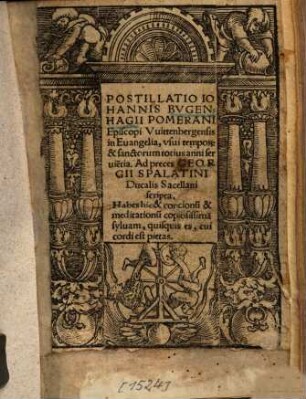 POSTILLATIO IO
HANNIS BVGEN
HAGII POMERANI
Episcopi Vuittenbergensis
in Euangelia, vsui temporũ
& sanctorum totius anni ser
uiẽtia. Ad preces GEOR
GII SPALATINI
Ducalis Sacellani
scripta.
Habes hic & concionũ &
meditationũ copiosissimã
syluam, quisquis es, cui
cordi est pietas.
[1524]